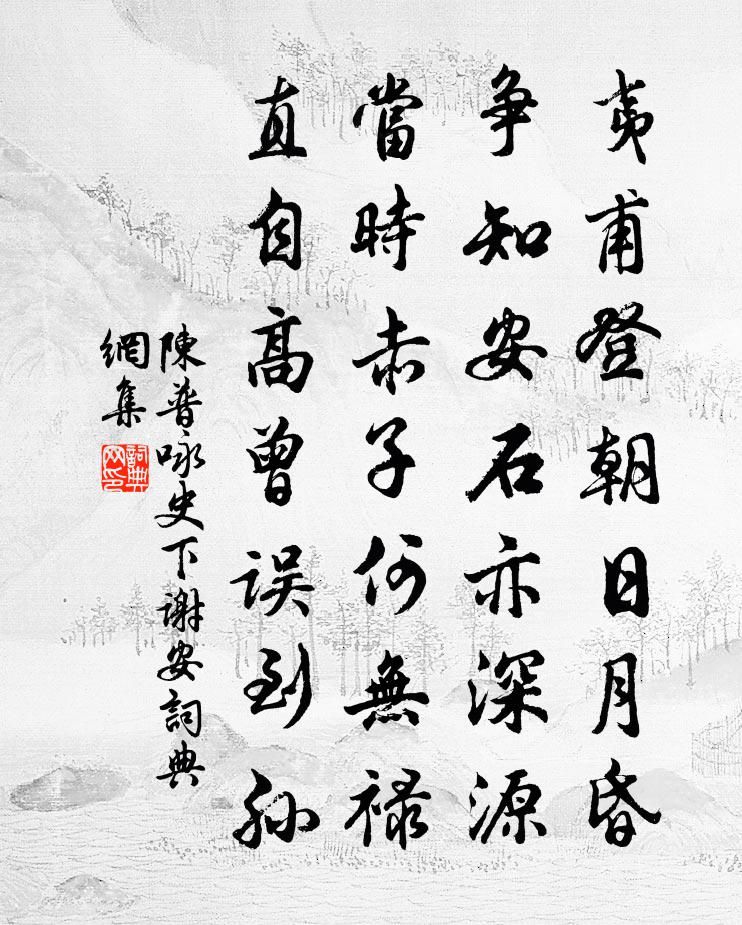 夷甫登朝日月昏
争知安石亦深源
當時赤子何無禄
直自高曾误到孙
陳普咏史下谢安詞典
網集
詞典網印